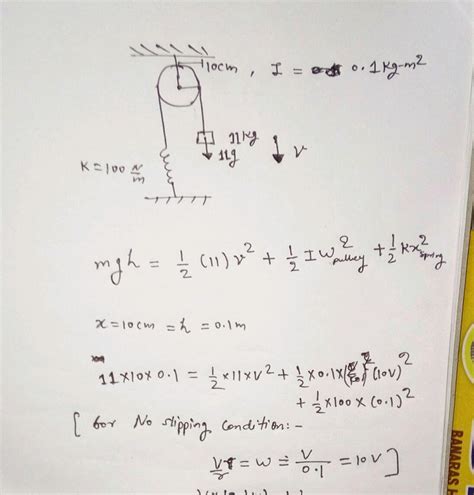 10cm, I = 0.1 kg-m²
11kg
11g
v
K=100 N/m
mgh = 1/2 (11) v² + 1/2 I ω²pulley + 1/2 Kx²spring
x = 10cm = h = 0.1m
11×10×0.1 = 1/2 ×11×v² + 1/2 ×0.1× (10v)²
+ 1/2 ×100 × (0.1)²
[ for No slipping condition:-
v/r = ω = v/0.1 = 10v ]
BANARAS